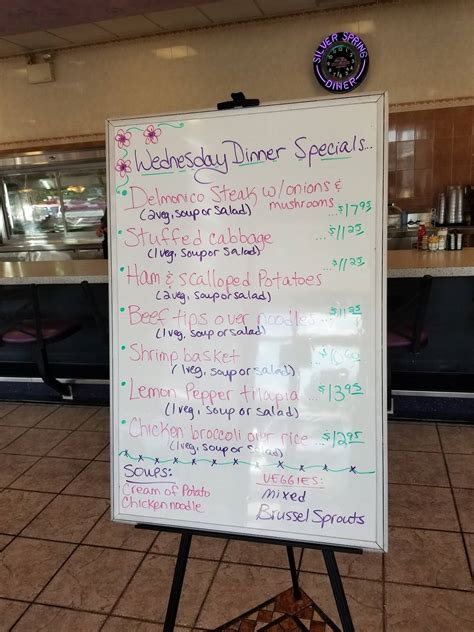 SILVER SPRING
DINER
Wednesday Dinner Specials...
Delmonico Steak w/onions &
mushrooms ...$17.95
(2veg, soup or salad)
Stuffed cabbage
(1veg, soup or salad)
Ham & scalloped Potatoes
(2veg, soup or salad)
Beef tips over noodles
(1veg, soup or salad)
Shrimp basket
(1veg, soup or salad)
Lemon Pepper tilapia ...$13.95
(1veg, soup or salad)
Chicken broccoli over rice ...$12.95
(1veg, soup or salad)
SOUPS:
Cream of Potato
Chicken noodle
VEGGIES:
Mixed
Brussel Sprouts